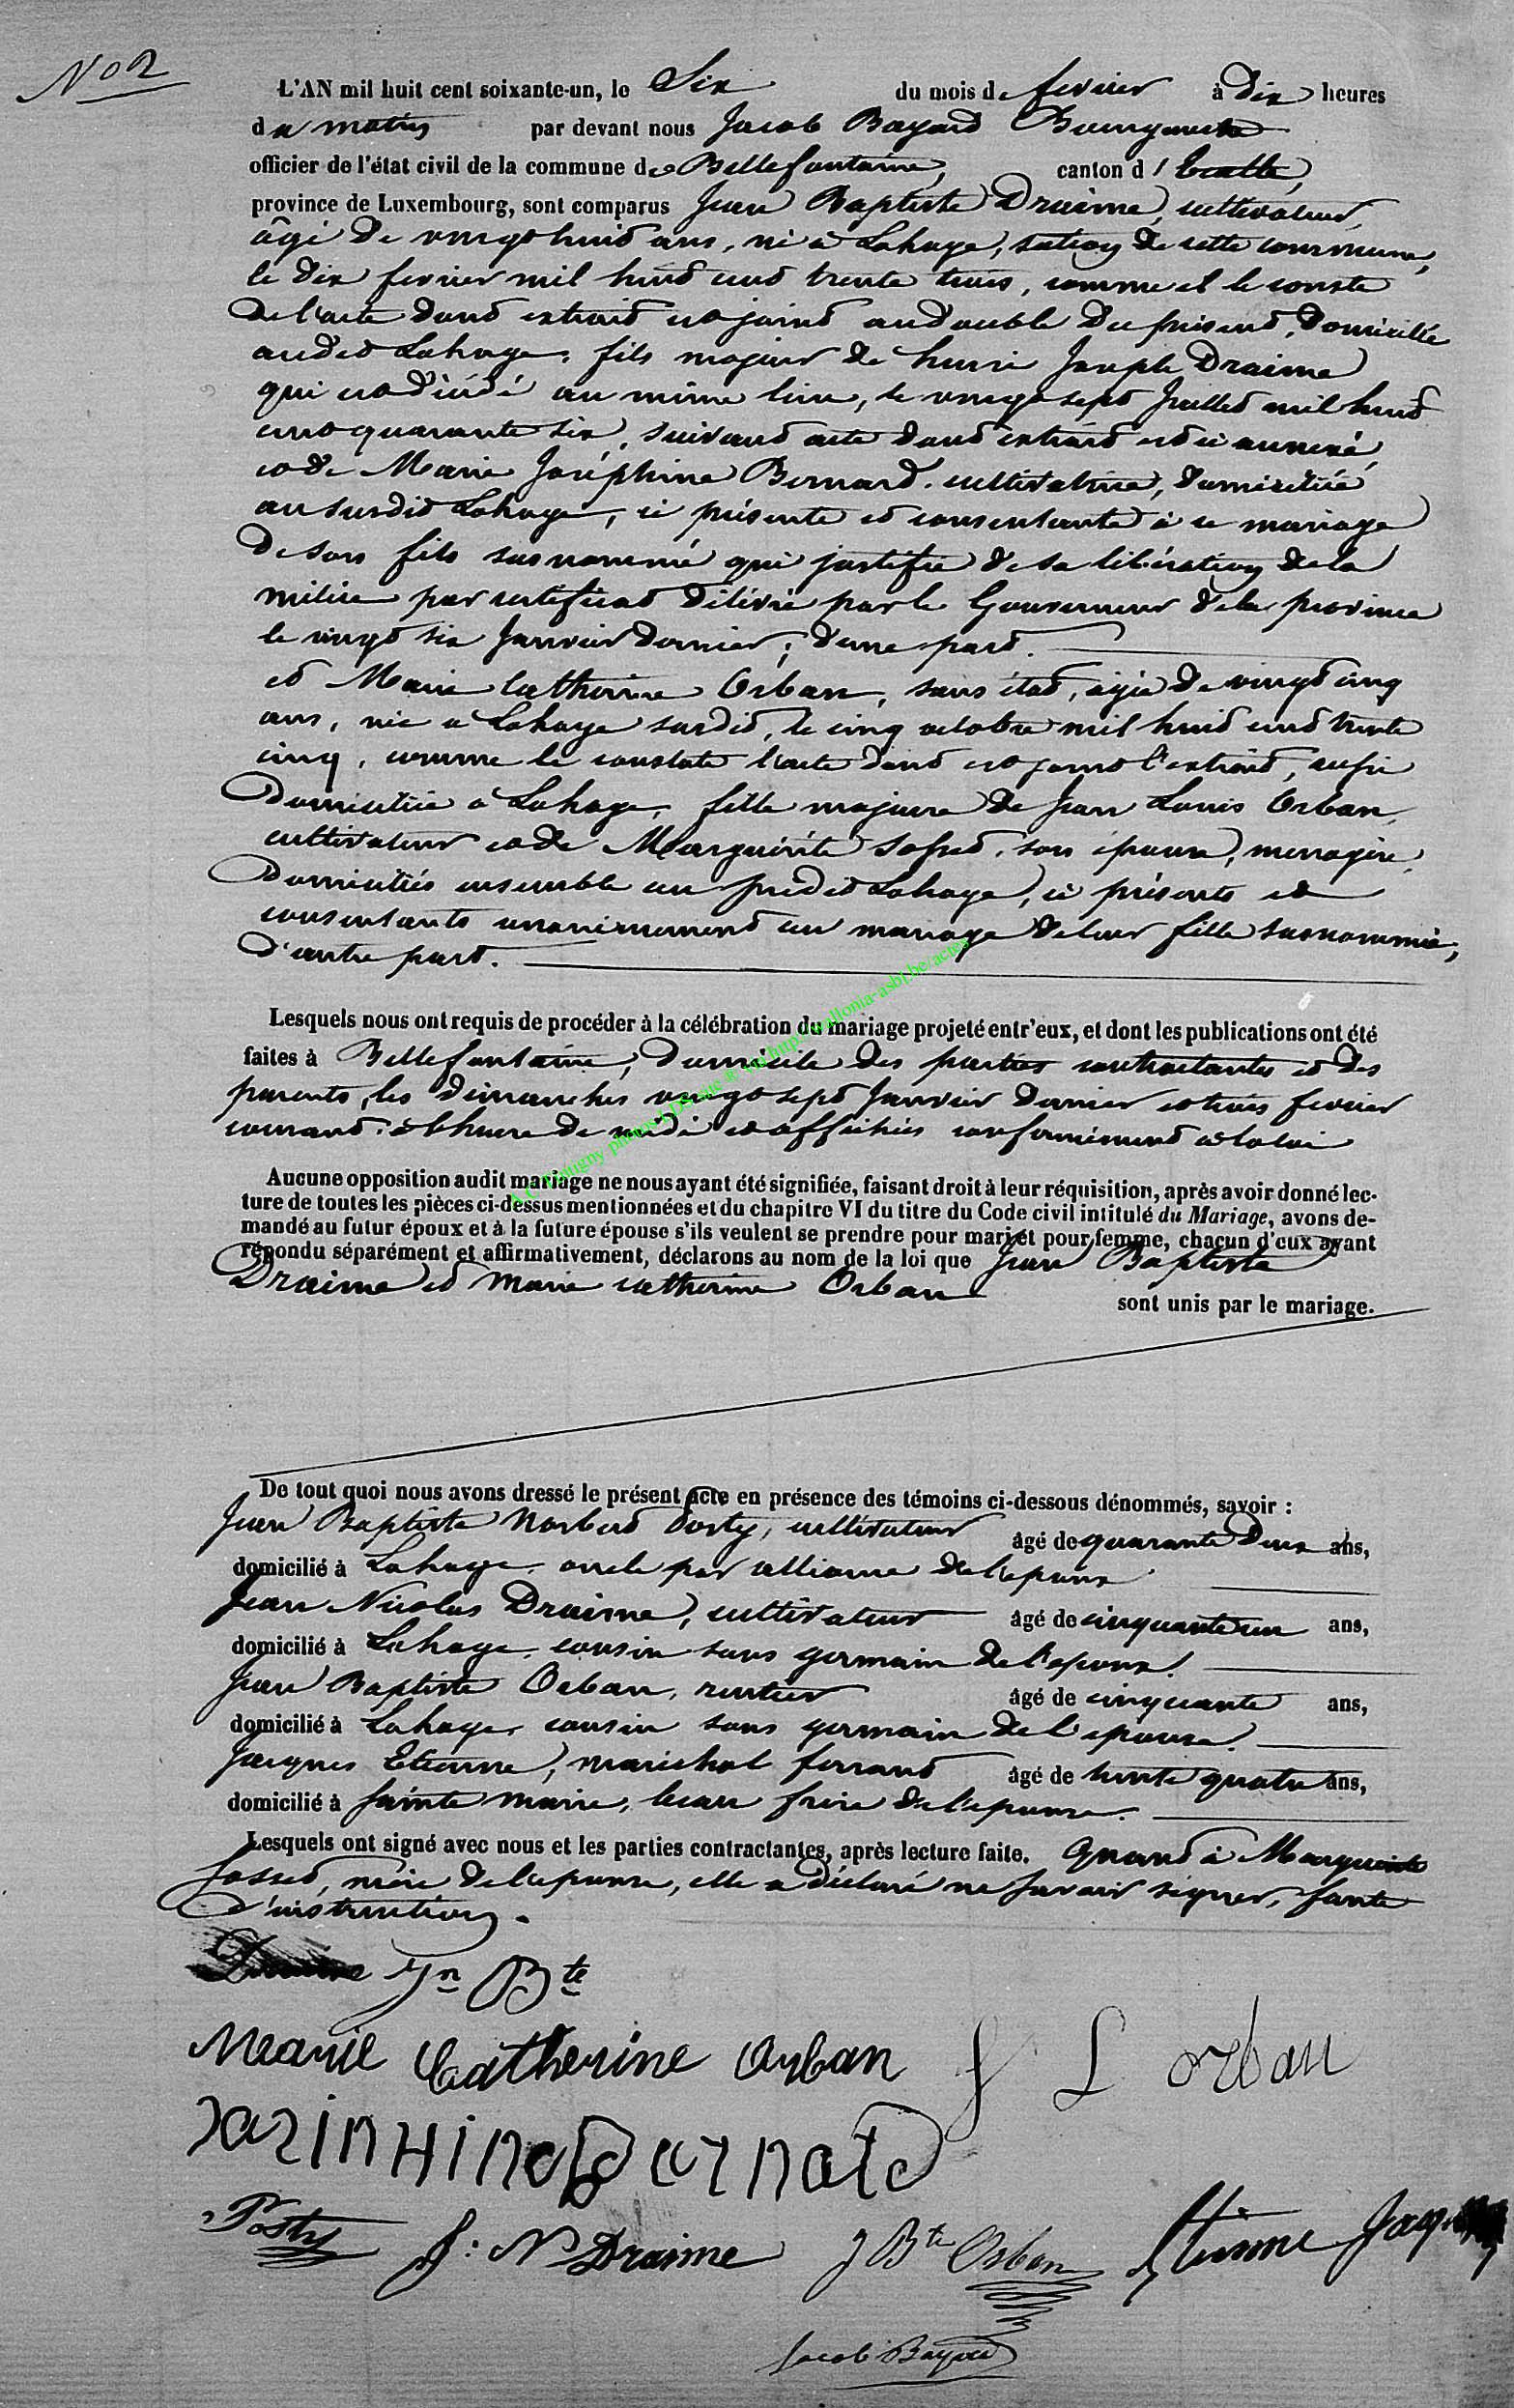 No 2
L'AN mil huit cent soixante-un, le Six du mois de fevrier à dix heures
du matin par devant nous Jacob Bayard Bourgmestre
officier de l'état civil de la commune de Bellefontaine, canton d'Etalle,
province de Luxembourg, sont comparus Jean Baptiste Draime, cultivateur,
âgé de vingt huit ans, né à Lahage, section de cette commune,
le dix fevrier mil huit cent trente trois, comme il le conste
de l'acte dont extrait est joint au double du présent, domicilié
audit Lahage, fils majeur de henri Joseph Draime
qui est décédé au même lieu, le vingt sept Juillet mil huit
cent quarante six, suivant acte dont extrait est ci annexé,
et de Marie Joséphine Bernard, cultivatrice, domiciliée
au susdit Lahage, ici présente et consentante à ce mariage
de son fils susnommé qui justifie de sa libération de la
milice par certificat délivré par le Gouverneur de la province
le vingt six Janvier dernier; d'une part.
et Marie Catherine Orban, sans état, âgée de vingt cinq
ans, née à Lahage susdit, le cinq octobre mil huit cent trente
cinq, comme le constate l'acte dont est joint l'extrait, aussi
domiciliée à Lahage, fille majeure de Jean Louis Orban,
cultivateur et de Marguérite Sosset, son épouse, menagère,
domiciliés ensemble au prédit Lahage, ici présents et
consentants unanimement au mariage de leur fille susnommée,
d'autre part.
Lesquels nous ont requis de procéder à la célébration du mariage projeté entr'eux, et dont les publications ont été
faites à Bellefontaine, domicile des parties contractantes et des
parents, les dimanches vingt sept Janvier dernier et trois fevrier
courant à l'heure de midi et affichées conformément à la loi
Aucune opposition audit mariage ne nous ayant été signifiée, faisant droit à leur réquisition, après avoir donné lec-
ture de toutes les pièces ci-dessus mentionnées et du chapitre VI du titre du Code civil intitulé du Mariage, avons de-
mandé au futur époux et à la future épouse s'ils veulent se prendre pour mari et pour femme, chacun d'eux ayant
répondu séparément et affirmativement, déclarons au nom de la loi que Jean Baptiste
Draime et Marie catherine Orban
sont unis par le mariage.
De tout quoi nous avons dressé le présent acte en présence des témoins ci-dessous dénommés, savoir :
Jean Baptiste Norbert Posty, cultivateur âgé de quarante deux ans,
domicilié à Lahage, oncle par alliance de l'époux
Jean Nicolas Draime, cultivateur âgé de cinquante un ans,
domicilié à Lahage, cousin sous germain de l'epoux.
Jean Baptiste Orban, rentier âgé de cinquante ans,
domicilié à Lahage, cousin sous germain de l'epouse.
Jacques Etienne, maréchal ferrant âgé de trente quatre ans,
domicilié à Sainte Marie, beau frère de l'epouse.
Lesquels ont signé avec nous et les parties contractantes, après lecture faite. Quant à Marguerite
Sosset, mère de l'epouse, elle a déclaré ne savoir signer, faute
d'instruction.
Draime Jn Bte
Marie Catherine Orban J L orban
Posty J: N Draime J Bte Orban Etienne Jacques
Jacob Bayard